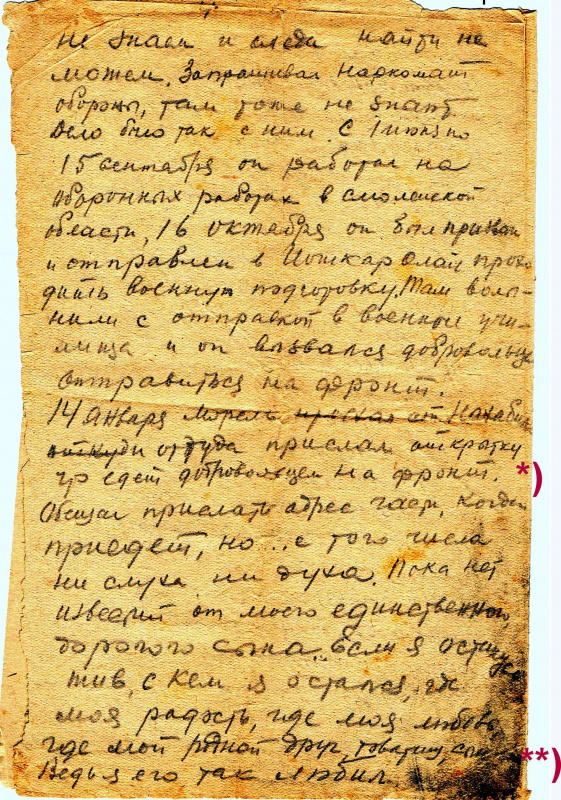 не знаем и следа найти не
можем. Запрашивал Наркомат
обороны, там тоже не знают.
Дело было так с ним. С 1 июня по
15 сентября он работал на
оборонных работах в смоленской
области, 16 октября он был призван
и отправлен в Йошкар Олай прохо
дить военную подготовку. Там воло-
нили с отправкой в военное учи-
лища и он вызвался добровольцем
отправиться на фронт.
14 января Морель прислал от Нахабин
откуди оттуда прислал открытку
что едет добровольцем на фронт. *)
Обещал прислать адрес части, когда
приедет, но... с того числа
ни слуха ни духа. Пока нет
известий от моего единственного
дорогого сына... Если я останусь
жив, с кем я остался, где
моя радость, где моя любовь,
где мой родной друг, товарищ, сын **)
Ведь я его так любил.